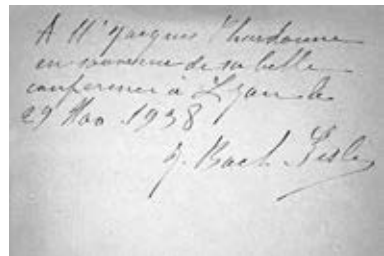 A Mr Jacques Chardonne
en souvenir de sa belle
conférence à Lyon le
29 Nov 1938
J. Bach Sisley